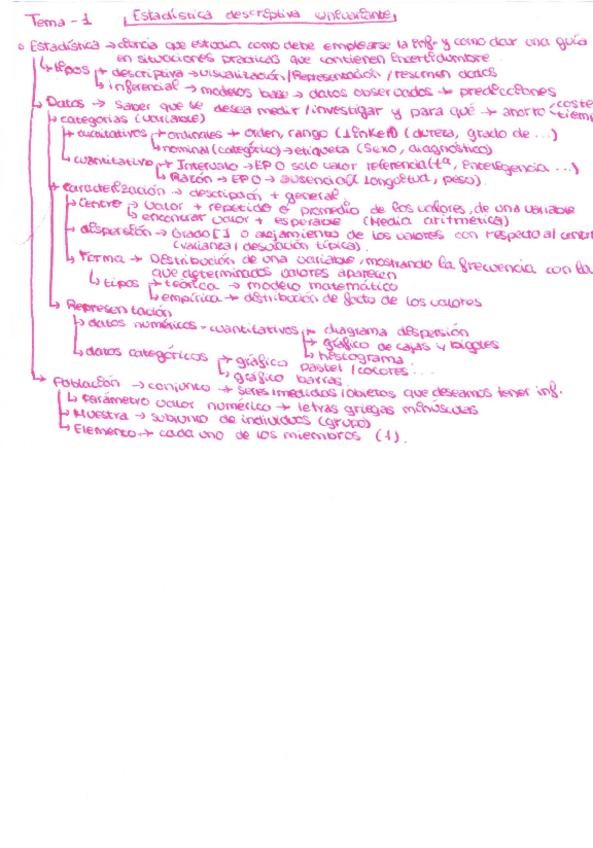 Tema - 1 Estadística descriptiva univariante
Estadística → ciencia que estudia como debe emplearse la inf. y como dar una guía
en situaciones practicas que contienen incertidumbre
↳ tipos → descriptiva → visualización/Representación/resumen datos
↳ inferencial → modelos base → datos observados → predicciones
↳ Datos → saber que se desea medir/investigar y para qué → ahorro coste
tiem
↳ categorías (variable)
↳ cualitativos → ordinales → orden, rango (likert) (dureza, grado de ...)
↳ nominal (categórico) → etiqueta (sexo, diagnóstico)
↳ cuantitativo → Intervalo → EP 0 solo valor referencia (tª, inteligencia ...)
↳ Razón → EP 0 → ausencia (longitud, peso)
↳ caracterización → descripción + general
↳ Centro → valor + repetido o promedio de los valores, de una variable
↳ encontrar valor + esperable (Media aritmética)
↳ dispersión → Grado [ ] o alejamiento de los valores con respecto al centr
(varianza / desviación típica).
↳ Forma → Distribución de una variable, mostrando la frecuencia con la
que determinados valores aparecen
↳ tipos → teórica → modelo matemático
↳ empírica → distribución de facto de los valores
↳ Representación
↳ datos numéricos - cuantitativos → diagrama dispersión
↳ gráfico de cajas y bigotes
↳ histograma
↳ datos categóricos → gráfico pastel / colores ...
↳ gráfico barras.
↳ Población → conjunto → seres/medidas/objetos que deseamos tener inf.
↳ Parámetro valor numérico → letras griegas minúsculas
↳ Muestra → subunto de individuos (grupo)
↳ Elemento → cada uno de los miembros (1).